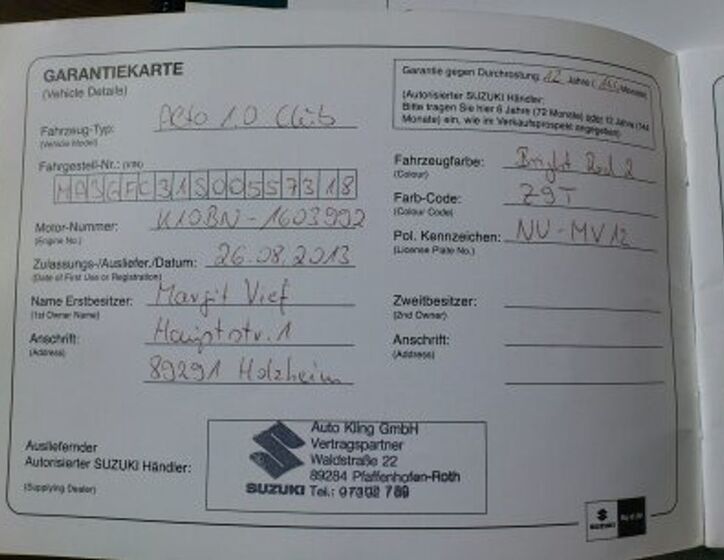 GARANTIEKARTE
(Vehicle Details)
Garantie gegen Durchrostung: 12 Jahre (144 Monate)
(Autorisierter SUZUKI Händler:
Bitte tragen Sie hier 6 Jahre (72 Monate) oder 12 Jahre (144
Monate) ein, wie im Verkaufsprospekt angegeben)
Fahrzeug-Typ: Alto 1.0 Club
(Vehicle Model)
Fahrgestell-Nr.: (VIN)
MA3GFC31S00557318
Motor-Nummer: K10BN-1603992
(Engine No.)
Zulassungs-/Ausliefer./Datum: 26.08.2013
(Date of First Use or Registration)
Name Erstbesitzer: Margit Vief
(1st Owner Name)
Anschrift: Hauptstr. 1
(Address)
89291 Holzheim
Fahrzeugfarbe: Bright Red 2
(Colour)
Farb-Code: Z9T
(Colour Code)
Pol. Kennzeichen: NU-MV12
(License Plate No.)
Zweitbesitzer:
(2nd Owner)
Anschrift:
(Address)
Ausliefernder
Autorisierter SUZUKI Händler:
(Supplying Dealer)
Auto Kling GmbH
Vertragspartner
Waldstraße 22
89284 Pfaffenhofen-Roth
SUZUKI Tel.: 07302 789
SUZUKI